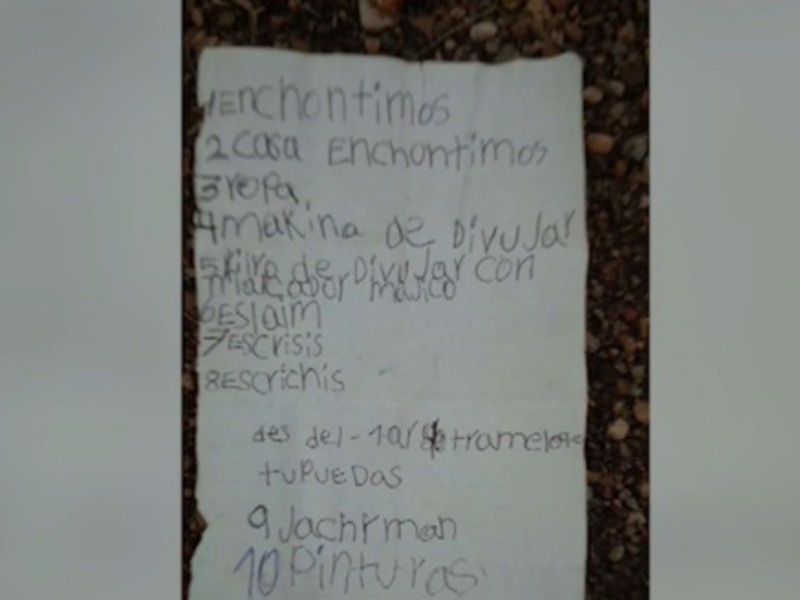 1 Enchontimos
2 casa Enchontimos
3 ropa
4 makina de Divujar
5 de Divujar con
marcador majico
6 Eslaim
7 Escrisis
8 Escrichis
des del-1 al 8 trame lo
tu PuEDas
9 Jachrman
10 Pinturas